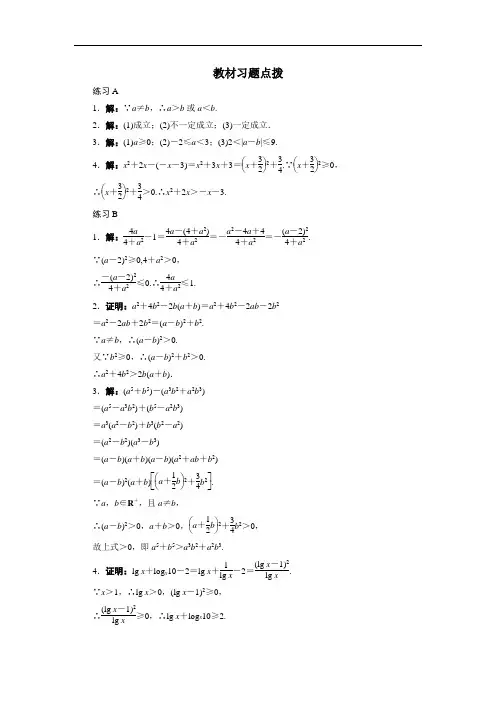 教材习题点拨
练习A
1．解：∵a≠b，∴a＞b或a＜b.
2．解：(1)成立；(2)不一定成立；(3)一定成立．
3．解：(1)a≥0；(2)－2≤a＜3；(3)2＜|a－b|≤9.
4．解：x²＋2x－(－x－3)＝x²＋3x＋3＝(x＋3/2)²＋3/4.∵(x＋3/2)²≥0，
∴(x＋3/2)²＋3/4＞0.∴x²＋2x＞－x－3.
练习B
1．解：4a/(4＋a²)－1＝(4a－(4＋a²))/(4＋a²)＝－(a²－4a＋4)/(4＋a²)＝－(a－2)²/(4＋a²).
∵(a－2)²≥0,4＋a²＞0，
∴－(a－2)²/(4＋a²)≤0.∴4a/(4＋a²)≤1.
2．证明：a²＋4b²－2b(a＋b)＝a²＋4b²－2ab－2b²
＝a²－2ab＋2b²＝(a－b)²＋b².
∵a≠b，∴(a－b)²＞0.
又∵b²≥0，∴(a－b)²＋b²＞0.
∴a²＋4b²＞2b(a＋b)．
3．解：(a⁵＋b⁵)－(a³b²＋a²b³)
＝(a⁵－a³b²)＋(b⁵－a²b³)
＝a³(a²－b²)＋b³(b²－a²)
＝(a²－b²)(a³－b³)
＝(a－b)(a＋b)(a－b)(a²＋ab＋b²)
＝(a－b)²(a＋b)[(a＋1/2b)²＋3/4b²].
∵a，b∈R⁺，且a≠b，
∴(a－b)²＞0，a＋b＞0，(a＋1/2b)²＋3/4b²＞0，
故上式＞0，即a⁵＋b⁵＞a³b²＋a²b³.
4．证明：lg x＋logₓ10－2＝lg x＋1/lg x－2＝(lg x－1)²/lg x.
∵x＞1，∴lg x＞0，(lg x－1)²≥0，
∴(lg x－1)²/lg x≥0，∴lg x＋logₓ10≥2.